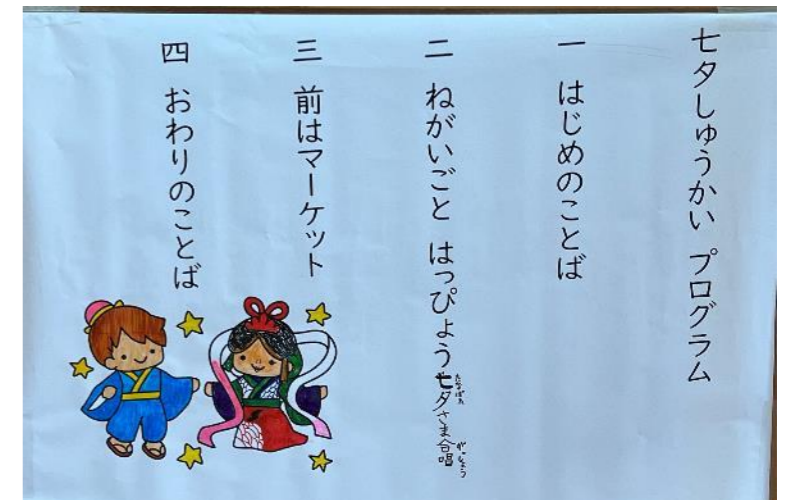 七夕しゅうかい プログラム
一 はじめのことば
二 ねがいごと はっぴょう 七夕さま合唱
たなばた
がっしょう
三 前はマーケット
四 おわりのことば